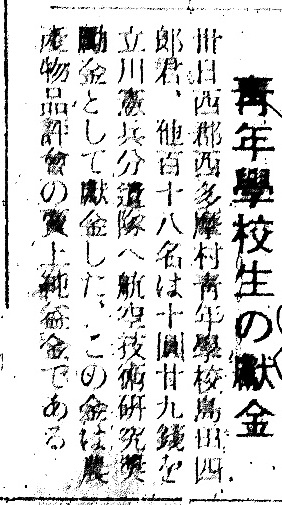 靑年學校生の獻金
卅日西郡西多摩村靑年學校島田四
郎君、他百十八名は十圓廿九錢を
立川憲兵分遣隊へ航空技術硏究奬
勵金として獻金した、この金は農
產物品評會の賣上純益金である